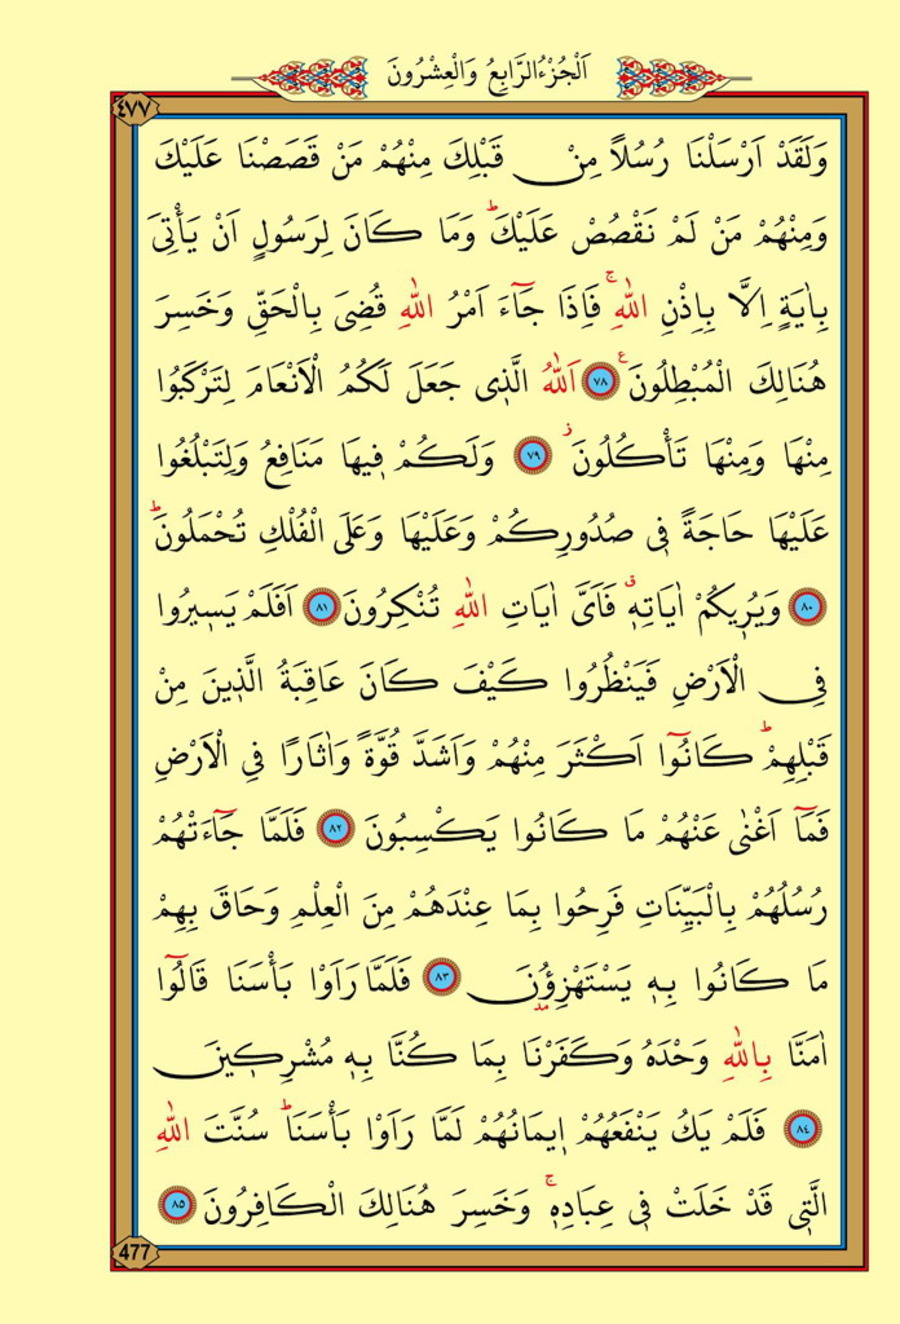 اَلْجُزْءُ الرَّابِعُ وَالْعِشْرُونَ
٤٧٧
وَلَقَدْ اَرْسَلْنَا رُسُلاً مِنْ قَبْلِكَ مِنْهُمْ مَنْ قَصَصْنَا عَلَيْكَ
وَمِنْهُمْ مَنْ لَمْ نَقْصُصْ عَلَيْكَۜ وَمَا كَانَ لِرَسُولٍ اَنْ يَأْتِيَ
بِاٰيَةٍ اِلَّا بِاِذْنِ اللّٰهِۚ فَاِذَا جَٓاءَ اَمْرُ اللّٰهِ قُضِيَ بِالْحَقِّ وَخَسِرَ
هُنَالِكَ الْمُبْطِلُونَ ﴿٧٨﴾ اَللّٰهُ الَّذ۪ي جَعَلَ لَكُمُ الْاَنْعَامَ لِتَرْكَبُوا
مِنْهَا وَمِنْهَا تَأْكُلُونَ ﴿٧٩﴾ وَلَكُمْ ف۪يهَا مَنَافِعُ وَلِتَبْلُغُوا
عَلَيْهَا حَاجَةً ف۪ي صُدُورِكُمْ وَعَلَيْهَا وَعَلَى الْفُلْكِ تُحْمَلُونَۜ
﴿٨٠﴾ وَيُر۪يكُمْ اٰيَاتِه۪ۗ فَاَيَّ اٰيَاتِ اللّٰهِ تُنْكِرُونَ ﴿٨١﴾ اَفَلَمْ يَس۪يرُوا
فِي الْاَرْضِ فَيَنْظُرُوا كَيْفَ كَانَ عَاقِبَةُ الَّذ۪ينَ مِنْ
قَبْلِهِمْۜ كَانُٓوا اَكْثَرَ مِنْهُمْ وَاَشَدَّ قُوَّةً وَاٰثَارًا فِي الْاَرْضِ
فَمَٓا اَغْنٰى عَنْهُمْ مَا كَانُوا يَكْسِبُونَ ﴿٨٢﴾ فَلَمَّا جَٓاءَتْهُمْ
رُسُلُهُمْ بِالْبَيِّنَاتِ فَرِحُوا بِمَا عِنْدَهُمْ مِنَ الْعِلْمِ وَحَاقَ بِهِمْ
مَا كَانُوا بِه۪ يَسْتَهْزِؤُ۫نَ ﴿٨٣﴾ فَلَمَّا رَاَوْا بَأْسَنَا قَالُٓوا
اٰمَنَّا بِاللّٰهِ وَحْدَهُ وَكَفَرْنَا بِمَا كُنَّا بِه۪ مُشْرِك۪ينَ
﴿٨٤﴾ فَلَمْ يَكُ يَنْفَعُهُمْ ا۪يمَانُهُمْ لَمَّا رَاَوْا بَأْسَنَاۜ سُنَّتَ اللّٰهِ
الَّت۪ي قَدْ خَلَتْ ف۪ي عِبَادِه۪ۚ وَخَسِرَ هُنَالِكَ الْكَافِرُونَ ﴿٨٥﴾
477